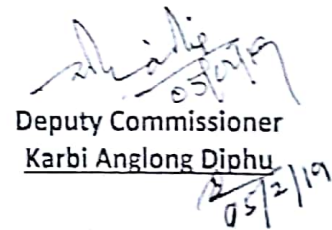 05/02/19
Deputy Commissioner
Karbi Anglong Diphu
05/2/19